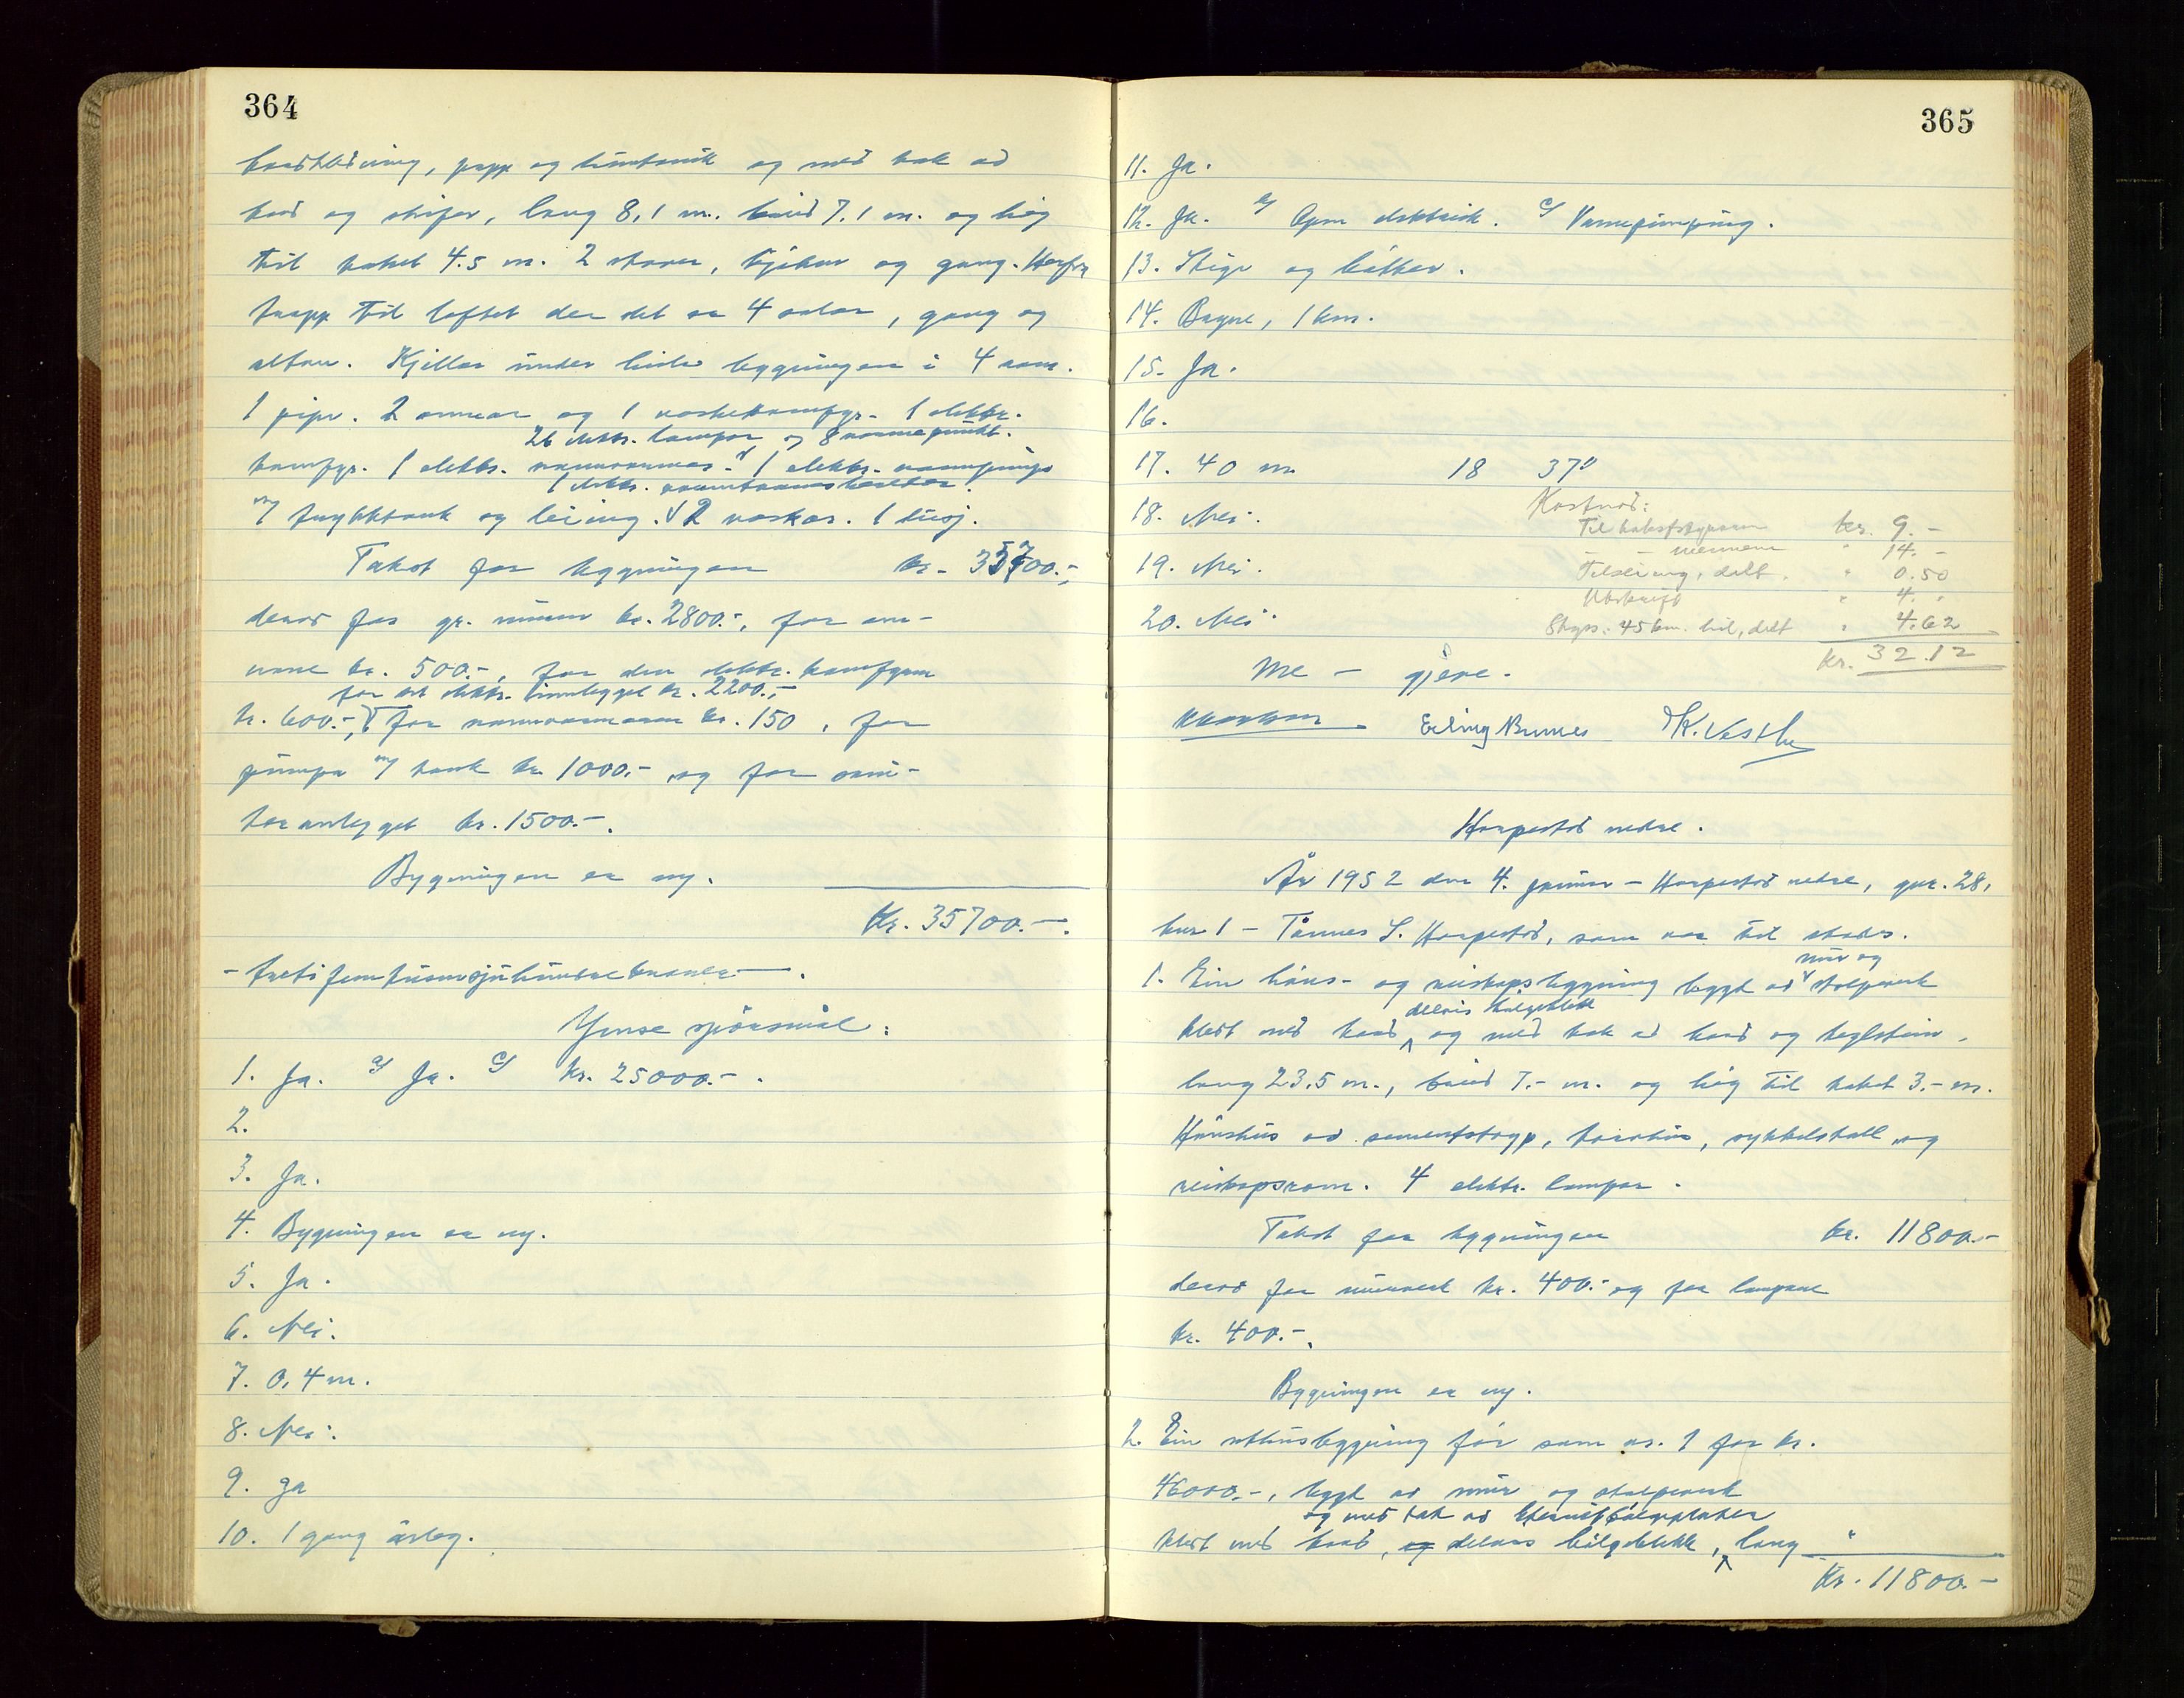 364
bordkledning, papp og tømmer og med tak av
bord og skifer, lang 8,1 m. breid 7.1 m. og høg
til taket 4.5 m. 2 stover, kjøken og gang. Herfra
trapp til loftet der det er 4 soler, gang og
altan. Kjellar under heile bygningen i 4 rom.
1 pipe. 2 omnar og 1 vaskekomfyr. 1 elektr.
26 elektr. lampor og 8 varmepunkt.
komfyr. 1 elektr. 1 elektr.
1 elektr.
m/ trykktank og leiing. 2 vaskar. 1 dusj.
Takst for bygningen kr. 35700.-,
derav for gr. muren kr. 2800.-, for om-
nane kr. 500.-, for den elektr. komfyren
for det elektr. innlegget kr. 2200.-
kr. 600.-, for kr. 150, for
pumpa m/ tank kr. 1000.- og for sani-
tæranlegget kr. 1500.-.
Bygningen er ny.
Kr. 35700.-.
- trettifemtusensjuhundrekroner -.
Ymse spørsmål:
1. Ja. a/ Ja. c/ kr. 25000.-.
2.
3. Ja.
4. Bygningen er ny.
5. Ja.
6. Nei.
7. 0,4 m.
8. Nei.
9. Ja
10. 1 gong årleg.
365
11. Ja.
12. Ja. Open elektrisk. c/ Varmepumping.
13. Stige og bøtter.
14. Bryne, 1 km.
15. Ja.
16.
17. 40 m 18 370
18. Nei.
Kostnad:
Til takstskyparen kr. 9.-
- - mennene " 14.-
19. Nei.
Tilseiing, delt. " 0.50
Utskrift " 4. "
20. Nei.
Skyss: 45 km. bil, delt " 4.62
Kr. 32.12
Me - gjeve.
Erling Bunes K. Vestly
Harpestad nedre.
År 1952 den 4. januar - Harpestad nedre, gnr. 28,
bnr. 1 - Tønnes S. Harpestad, som var til stades.
mur og
1. Ein høns- og reiskapsbygning bygd av stolpeverk
delvis bølgeblekk
kledt med bord og med tak av bord og teglstein,
lang 23.5 m., breid 7.- m. og høg til taket 3.- m.
Hønshus av sementstøyp, torvhus, sykkelstall og
reiskapsrom. 4 elektr. lampor.
Takst for bygningen kr. 11800.-
derav for murverk kr. 400.- og for lampene
kr. 400.-.
Bygningen er ny.
2. Ein uthusbygning før som nr. 1 for kr.
46000.-, bygd av mur og stolpeverk
og med tak av Eternitbølgeplater
kledt med bord, og delvis bølgeblekk, lang "
Kr. 11800.-